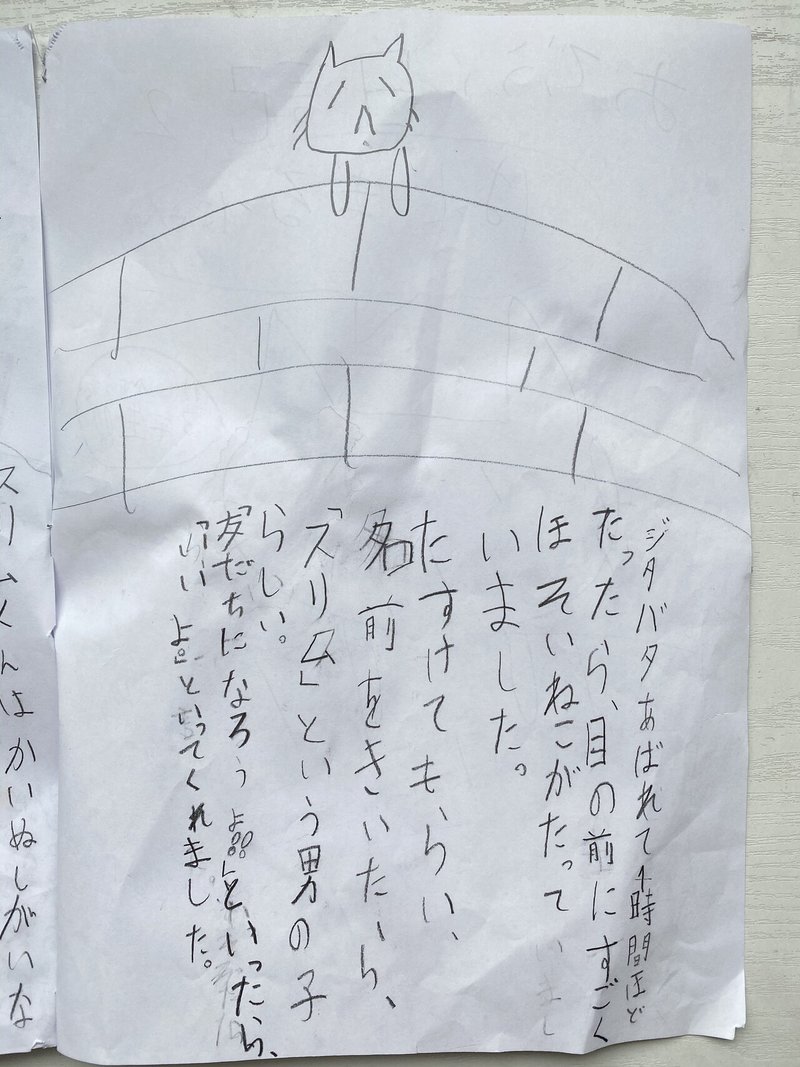 ジタバタあばれて1時間ほど
たったら、目の前にすごく
ほそいねこがたって
いました。
たすけてもらい、
名前をきいたら、
「スリム」という男の子
らしい。
「友だちになろうよ。」といったら、
「いいよ。」といってくれました。
スリムくんはかいぬしがいな